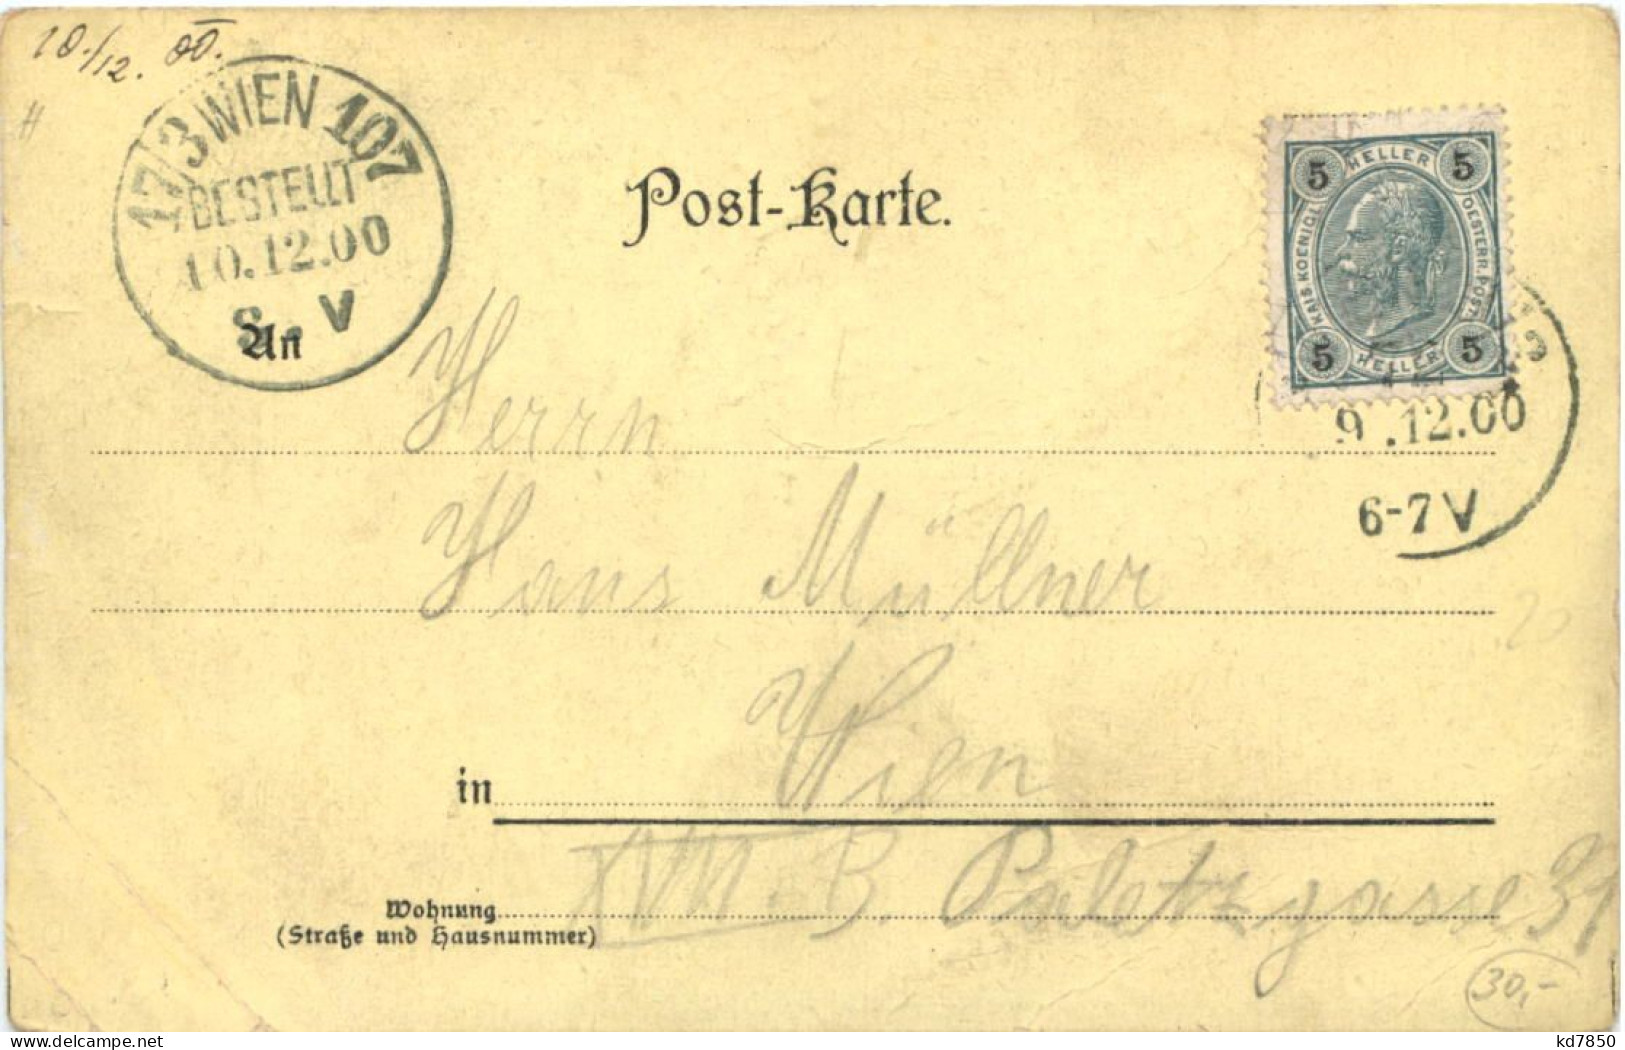 10./12. 00.
17/3 WIEN 107
BESTELLT
10.12.00
8. V
Post-Karte.
5 HELLER 5
KAIS. KOENIGL. OESTERR. POST.
5 HELLER 5
9.12.00
6-7 V
An
Herrn
Hans Müllner
in Wien
XVII. B. Paletzgasse 31
Wohnung
(Straße und Hausnummer)
30,-
kd7850